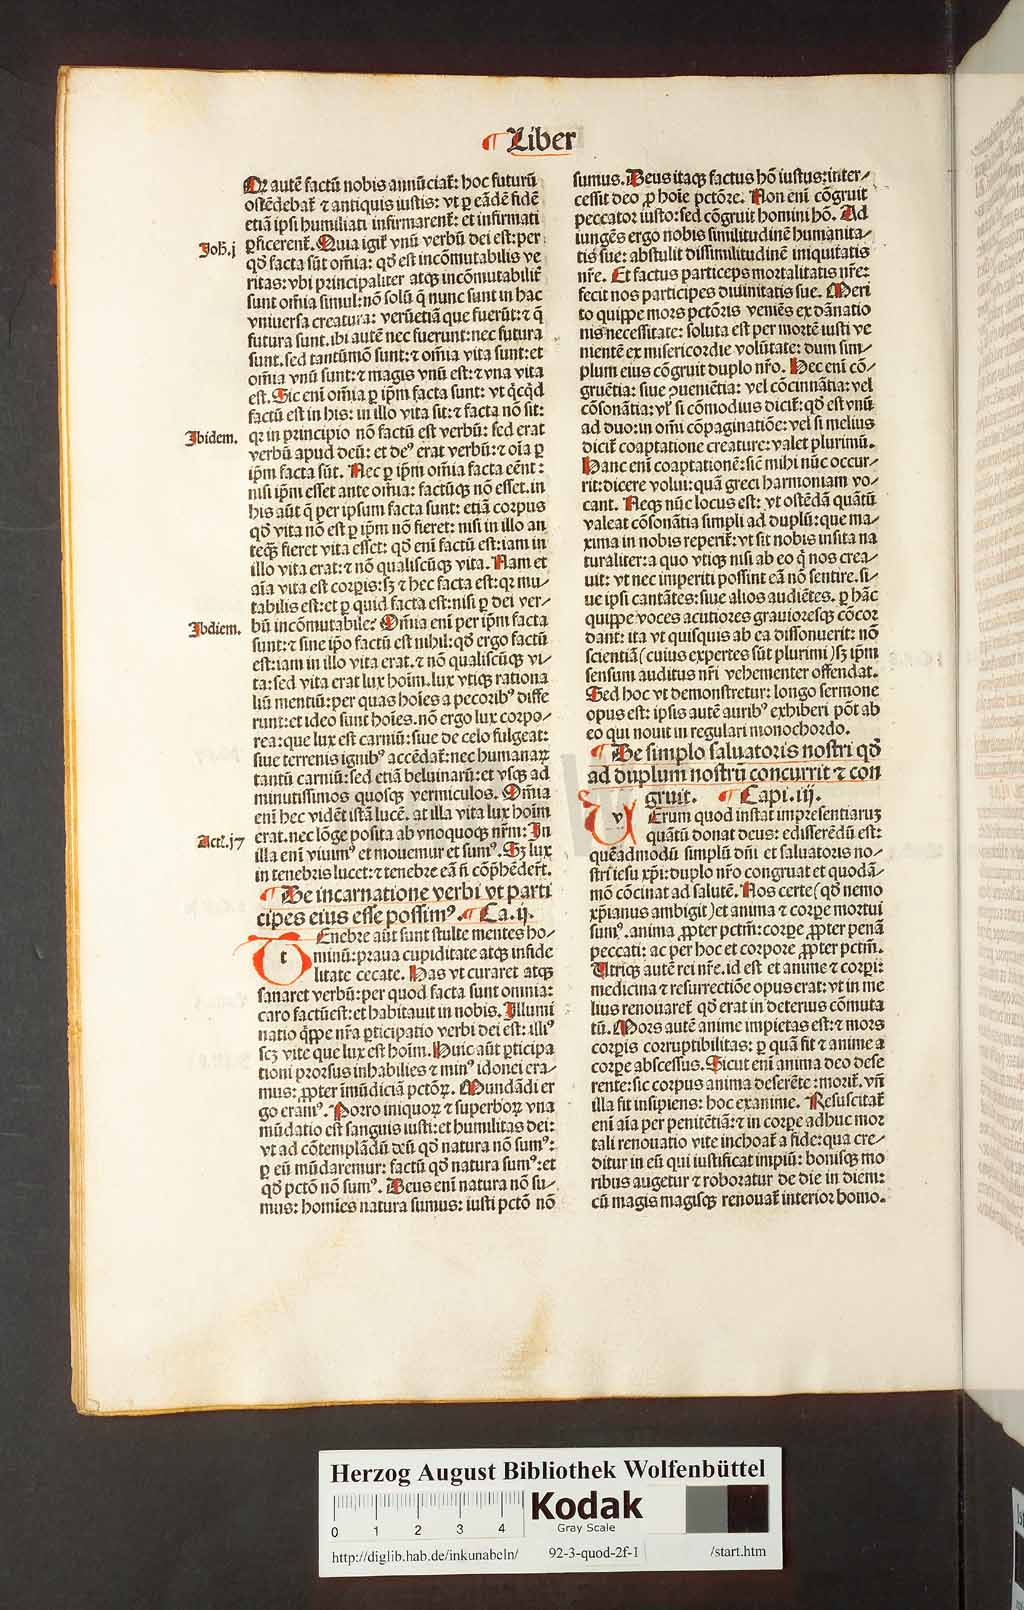 ¶ Liber
Qꝛ autē factū nobis annūciat᷑: hoc futurū
ostēdebat᷑ ⁊ antiquis iustis: vt ꝑ eādē fidē
etiā ipsi humiliati infirmarent᷑: et infirmati
Joħ.j
ꝑficerent᷑. Quia igit᷑ vnū verbū dei est: per
qđ facta sūt om̄ia: qđ est incōmutabilis ve
ritas: vbi principaliter atqꝫ incōmutabilit᷑
sunt om̄ia simul: nō solū q̄ nunc sunt in hac
vniuersa creatura: verūetiā que fuerūt: ⁊ q̄
futura sunt. ibi autē nec fuerunt: nec futura
sunt. sed tantūmō sunt: ⁊ om̄ia vita sunt: et
om̄ia vnū sunt: ⁊ magis vnū est: ⁊ vna vita
est. Sic eni om̄ia ꝑ ip̄m facta sunt: vt q̇cq̇d
factū est in his: in illo vita sit: ⁊ facta nō sit:
Jbidem.
qꝛ in principio nō factū est verbū: sed erat
verbū apud deū: et deꝰ erat verbū: ⁊ oīa ꝑ
ip̄m facta sūt. Nec ꝑ ip̄m om̄ia facta eēnt:
nisi ip̄m esset ante om̄ia: factūqꝫ nō esset. in
his aūt q̄ per ipsum facta sunt: etiā corpus
qđ vita nō est ꝑ ip̄m nō fieret: nisi in illo an
teqꝫ fieret vita esset: qđ eni factū est: iam in
illo vita erat: ⁊ nō qualiscūqꝫ vita. Nam et
aīa vita est corꝑis: sꝫ ⁊ hec facta est: qꝛ mu⸗
tabilis est: et ꝑ quid facta est: nisi ꝑ dei ver⸗
Jbdiem.
bū incōmutabile? Om̄ia eni per ip̄m facta
sunt: ⁊ sine ip̄o factū est nihil: qđ ergo factū
est: iam in illo vita erat. ⁊ nō qualiscūqꝫ vi⸗
ta: sed vita erat lux hoīm. lux vtiqꝫ rationa
liū mentiū: per quas hoīes a pecoribꝰ diffe
runt: et ideo sunt hoīes. nō ergo lux corpo⸗
rea: que lux est carniū: siue de celo fulgeat:
siue terrenis ignibꝰ accēdat᷑: nec humanaꝝ
tantū carniū: sed etiā beluinarū: et vsqꝫ ad
minutissimos quosqꝫ vermiculos. Om̄ia
eni hec vidēt istā lucē. at illa vita lux hoīm
Actꝰ.j7
erat. nec lōge posita ab vnoquoqꝫ nr̄m: In
illa eni viuimꝰ et mouemur et sumꝰ. Sꝫ lux
in tenebris lucet: ⁊ tenebre eā n̄ cōp̄hēder̄t.
¶ De incarnatione verbi vt parti
cipes eius esse possimꝰ. ¶ Ca.ij.
t
Enebre aūt sunt stulte mentes ho⸗
minū: praua cupiditate atqꝫ infide
litate cecate. Has vt curaret atqꝫ
sanaret verbū: per quod facta sunt omnia:
caro factū est: et habitauit in nobis. Illumi
natio q̇ppe nr̄a ꝑticipatio verbi dei est: illiꝰ
scꝫ vite que lux est hoīm. Huic aūt ꝑticipa
tioni prorsus inhabiles ⁊ minꝰ idonei era⸗
mus: ꝓpter īmūdiciā pctōꝝ. Mundādi er
go eramꝰ. Porro iniquoꝝ ⁊ superboꝝ vna
mūdatio est sanguis iusti: et humilitas dei:
vt ad cōtemplādū deū qđ natura nō sumꝰ:
ꝑ eū mūdaremur: factū qđ natura sumꝰ: et
qđ pctō nō sumꝰ. Deus eni natura nō su⸗
mus: homies natura sumus: iusti pctō nō
sumus. Deus itaqꝫ factus hō iustus: inter⸗
cessit deo ꝓ hoīe pctōre. Non eni cōgruit
peccator iusto: sed cōgruit homini hō. Ad
iungēs ergo nobis similitudinē humanita⸗
tis sue: abstulit dissimilitudinē iniquitatis
nr̄e. Et factus particeps mortalitatis nr̄e:
fecit nos participes diuinitatis sue. Meri
to quippe mors pctōris veniēs ex dānatio
nis necessitate: soluta est per mortē iusti ve
mentē ex misericordie volūtate: dum sim⸗
plum eius cōgruit duplo nr̄o. Hec eni cō⸗
gruētia: siue ꝯueniētia: vel cōcinnātia: vel
cōsonātia: vl̓ si cōmodius dicit᷑: qđ est vnū
ad duo: in omi cōpaginatiōe: vel si melius
dicit᷑ coaptatione creature: valet plurimū.
Hanc eni coaptationē: sic̄ mihi nūc occur⸗
rit: dicere volui: quā greci harmoniam vo⸗
cant. Neqꝫ nūc locus est: vt ostēdā quātū
valeat cōsonātia simpli ad duplū: que ma⸗
xima in nobis reperit᷑: vt sit nobis insita na
turaliter: a quo vtiqꝫ nisi ab eo q̇ nos crea⸗
uit: vt nec imperiti possint eā nō sentire. si⸗
ue ipsi cantātes: siue alios audiētes. ꝑ hāc
quippe voces acutiores grauioresqꝫ cōcor
dant: ita vt quisquis ab ea dissonuerit: nō
scientiā (cuius expertes sūt plurimi) sꝫ ip̄m
sensum auditus nr̄i vehementer offendat.
Sed hoc vt demonstretur: longo sermone
opus est: ipsis autē auribꝰ exhiberi pōt ab
eo qui nouit in regulari monochordo.
¶ De simplo saluatoris nostri qđ
ad duplum nostrū concurrit ⁊ con
gruit. ¶ Capi.iij.
v
Erum quod instat impresentiarꝫ
quātū donat deus: edisserēdū est:
quēadmodū simplū dn̄i et saluatoris no⸗
stri iesu xp̄i: duplo nr̄o congruat et quodā⸗
mō cōcinat ad salutē. Nos certe (qđ nemo
xp̄ianus ambigit) et anima ⁊ corꝑe mortui
sumꝰ. anima ꝓpter pctm̄: corꝑe ꝓpter penā
peccati: ac per hoc et corpore ꝓpter pctm̄.
Vtriqꝫ autē rei nr̄e. id est et anime ⁊ corꝑi:
medicina ⁊ resurrectiōe opus erat: vt in me
lius renouaret᷑ qđ erat in deterius cōmuta
tū. Mors autē anime impietas est: ⁊ mors
corꝑis corruptibilitas: ꝑ quā fit ⁊ anime a
corꝑe abscessus. Sicut eni anima deo dese
rente: sic corpus anima deserēte: morit᷑. vn̄
illa fit insipiens: hoc exanime. Resuscitat᷑
eni aīa per penitētiā: ⁊ in corꝑe adhuc mor
tali renouatio vite inchoat᷑ a fide: qua cre⸗
ditur in eū qui iustificat impiū: bonisqꝫ mo
ribus augetur ⁊ roboratur de die in diem:
cū magis magisqꝫ renouat᷑ interior homo.
Herzog August Bibliothek Wolfenbüttel
0 1 2 3 4
Kodak
Gray Scale
http://diglib.hab.de/inkunabeln/ 92-3-quod-2f-1 /start.htm